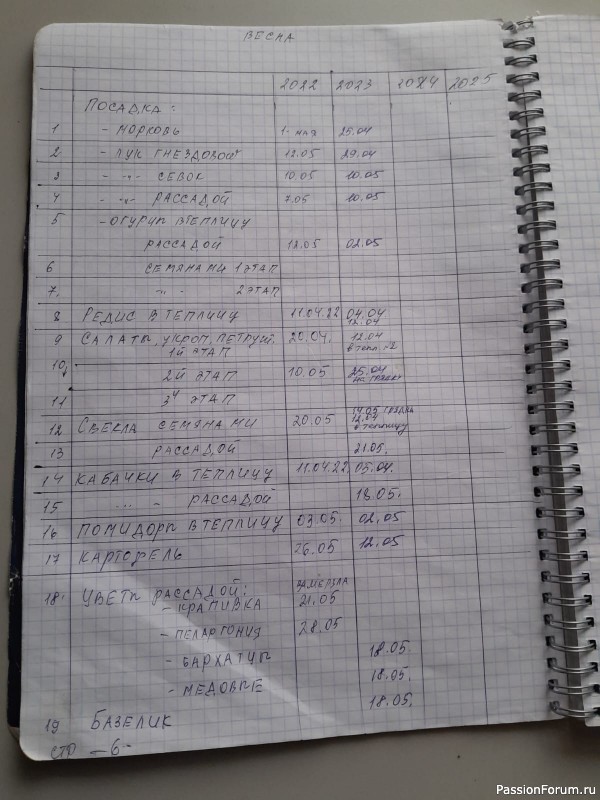 ВЕСНА
2022 2023 2024 2025
ПОСАДКА:
1 - МОРКОВЬ 1- МАЯ 25.04
2 - ЛУК ГНЕЗДОВОЙ 12.05 29.04
3 - -"- СЕВОК 10.05 10.05
4 - -"- РАССАДОЙ 7.05 10.05
5 - ОГУРЦЫ В ТЕПЛИЦУ
РАССАДОЙ 12.05 02.05
6 СЕМЯНАМИ 1 ЭТАП
7. -"- 2 ЭТАП
8 РЕДИС В ТЕПЛИЦУ 11.04.22 04.04
12.04
9 САЛАТЫ, УКРОП, ПЕТРУШ. 20.04. 12.04
1й ЭТАП В ТЕПЛ-
10. 2й ЭТАП 10.05 25.04
11 3й ЭТАП
14.05 ГРЯДКА
12 СВЕКЛА СЕМЯНАМИ 20.05 12.04
В ТЕПЛИЦУ
13 РАССАДОЙ 21.05.
14 КАБАЧКИ В ТЕПЛИЦУ 11.04.22 05.04.
15 -"- - РАССАДОЙ 18.05.
16 ПОМИДОРЫ В ТЕПЛИЦУ 03.05. 02.05
17 КАРТОФЕЛЬ 26.05 12.05
ЗАМЕРЗЛА
18. ЦВЕТЫ РАССАДОЙ: 21.05
- КРАПИВКА
- ПЕЛАРГОНИЯ 28.05
- БАРХАТЦЫ 18.05.
- МЕДОВЫЕ 18.05.
19 БАЗЕЛИК 18.05.
СТР - 6 -
PassionForum.ru